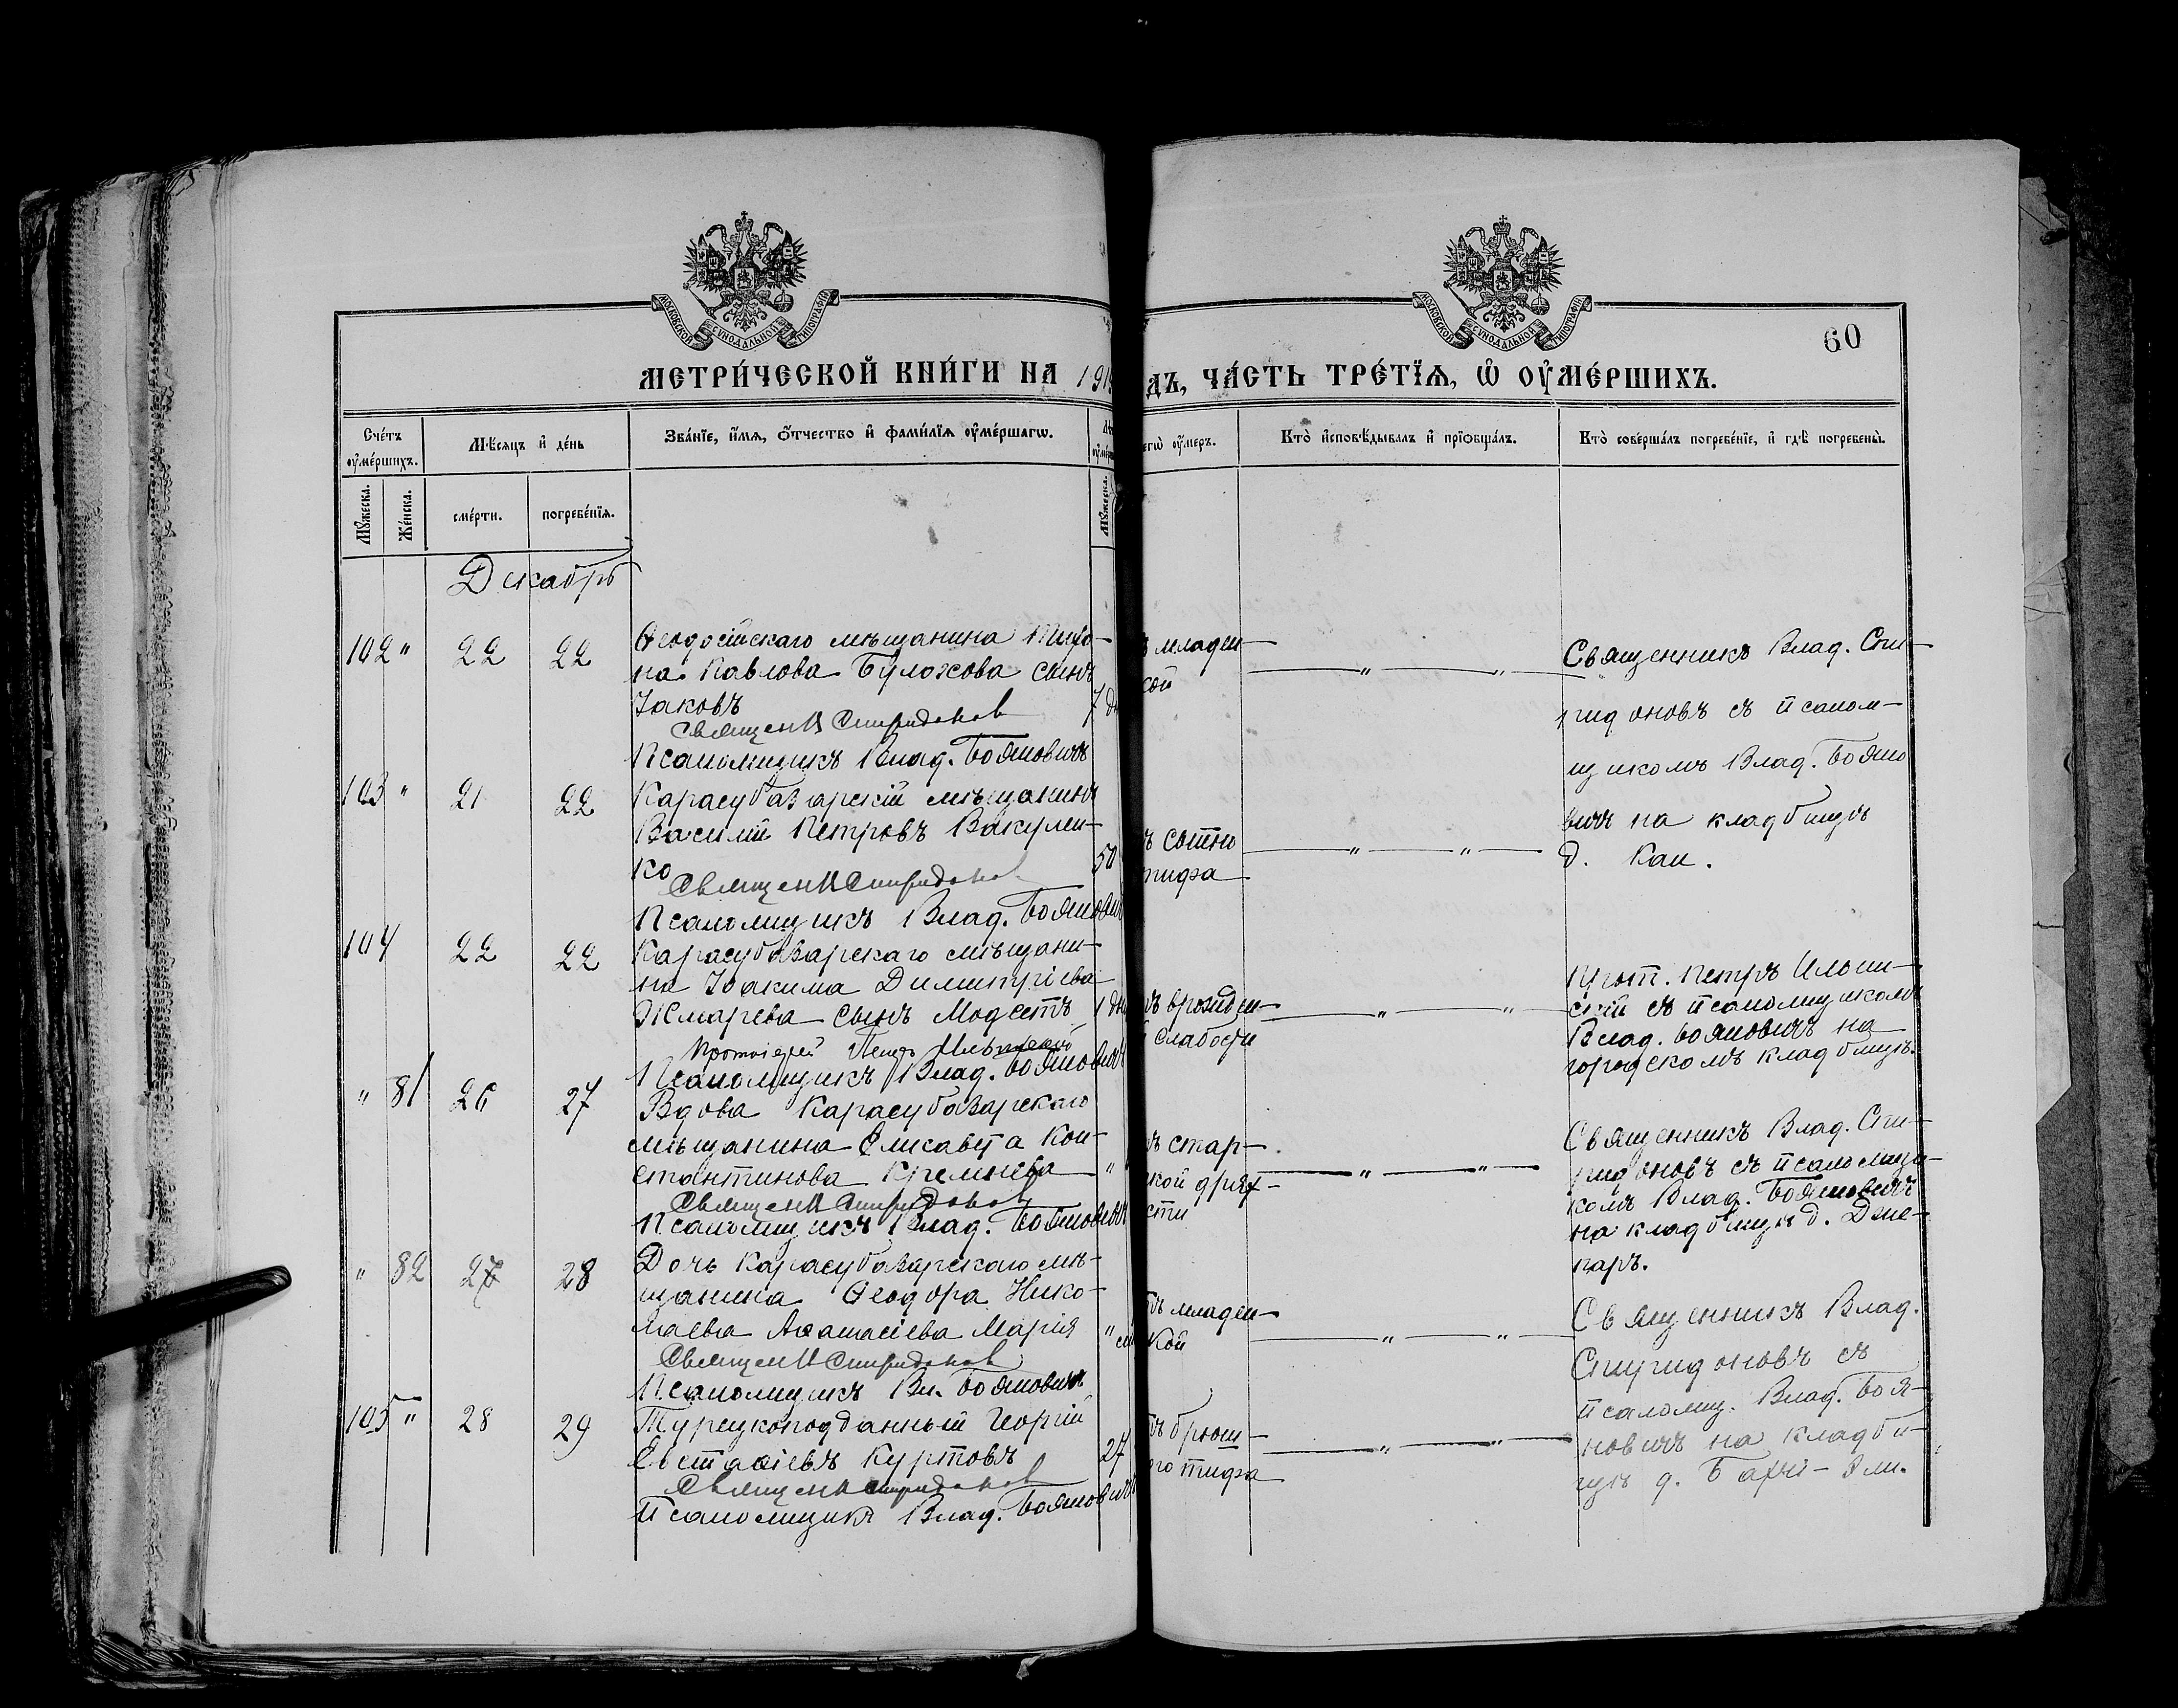 МОСКОВСКОЙ СѴНОДАЛЬНОЙ ТИПОГРАФІИ
МОСКОВСКОЙ СѴНОДАЛЬНОЙ ТИПОГРАФІИ
60
МЕТРИ́ЧЕСКОЙ КНИ́ГИ НА 191
дъ, ЧА́СТЬ ТРЕ́ТЇѦ, Ѽ ОУ҆МЕ́РШИХЪ.
Сче́тъ оу҆ме́ршихъ.
Мѣ́сѧцъ и҆ де́нь
Зва́нїе, и҆́мѧ, ѻ҆́тчество и҆ фами́лїѧ оу҆ме́ршагѡ.
егѡ̀ оу҆́меръ.
Кто̀ и҆сповѣ́дывалъ и҆ прїѡбща́лъ.
Кто̀ соверша́лъ погребе́нїе, и҆ гдѣ̀ погребены̀.
Мꙋ́жеска.
Же́нска.
сме́рти.
погребе́нїѧ.
Мꙋ́жеска.
Декабрь
102 " 22 22
Ѳеодосійскаго мѣщанина Тихо-
на Павлова Буложова сынъ
Іаковъ
7 дн
Священ Спиридонов
Псаломщикъ Влад. Бояновичъ
ъ младен-
кой
" "
Священникъ Влад. Спи-
ридоновъ съ псалом-
щикомъ Влад. Бояно
вичъ на кладбищѣ
д. Каи.
103 " 21 22
Карасубазарскій мѣщанинъ
Василій Петровъ Вакулен-
ко
50
Священ Спиридонов
Псаломщикъ Влад. Боянович
ъ сыпно
тифа
" "
104 22 22
Карасубазарскаго мѣщани-
на Іоакима Димитріева
Жмарева сынъ Модестъ
1 дн
Протоіерей Петръ Ильинский
Псаломщикъ Влад. Бояновичъ
ъ врожден-
слабости
" "
Прот. Петръ Ильин-
скій съ псаломщикомъ
Влад. Бояновичъ на
городскомъ кладбищѣ.
" 81 26 27
Вдова Карасубазарскаго
мѣщанина Елисавета Кон-
стантинова Кремнева
"
Священ Спиридонов
Псаломщикъ Влад. Бояновичъ
ъ стар-
кой дрях-
сти
" "
Священникъ Влад. Спи-
ридоновъ съ псаломщи-
комъ Влад. Бояновичъ
на кладбищѣ д. Джа-
паръ.
" 82 27 28
Дочь Карасубазарскаго мѣ-
щанина Ѳеодора Нико-
лаева Аѳанасіева Марія
"
Священ Спиридонов
Псаломщикъ Вл. Бояновичъ
ъ младен-
кой
" "
Священникъ Влад.
Спиридоновъ съ
псаломщ. Влад. Боя-
новичъ на кладби-
щѣ д. Бахчи-Эли.
105 " 28 29
Турецкоподданный Георгій
Евстаѳіевъ Куртовъ
27
Священ Спиридонов
Псаломщикъ Влад. Бояновичъ
ъ брюш-
го тифа
" "